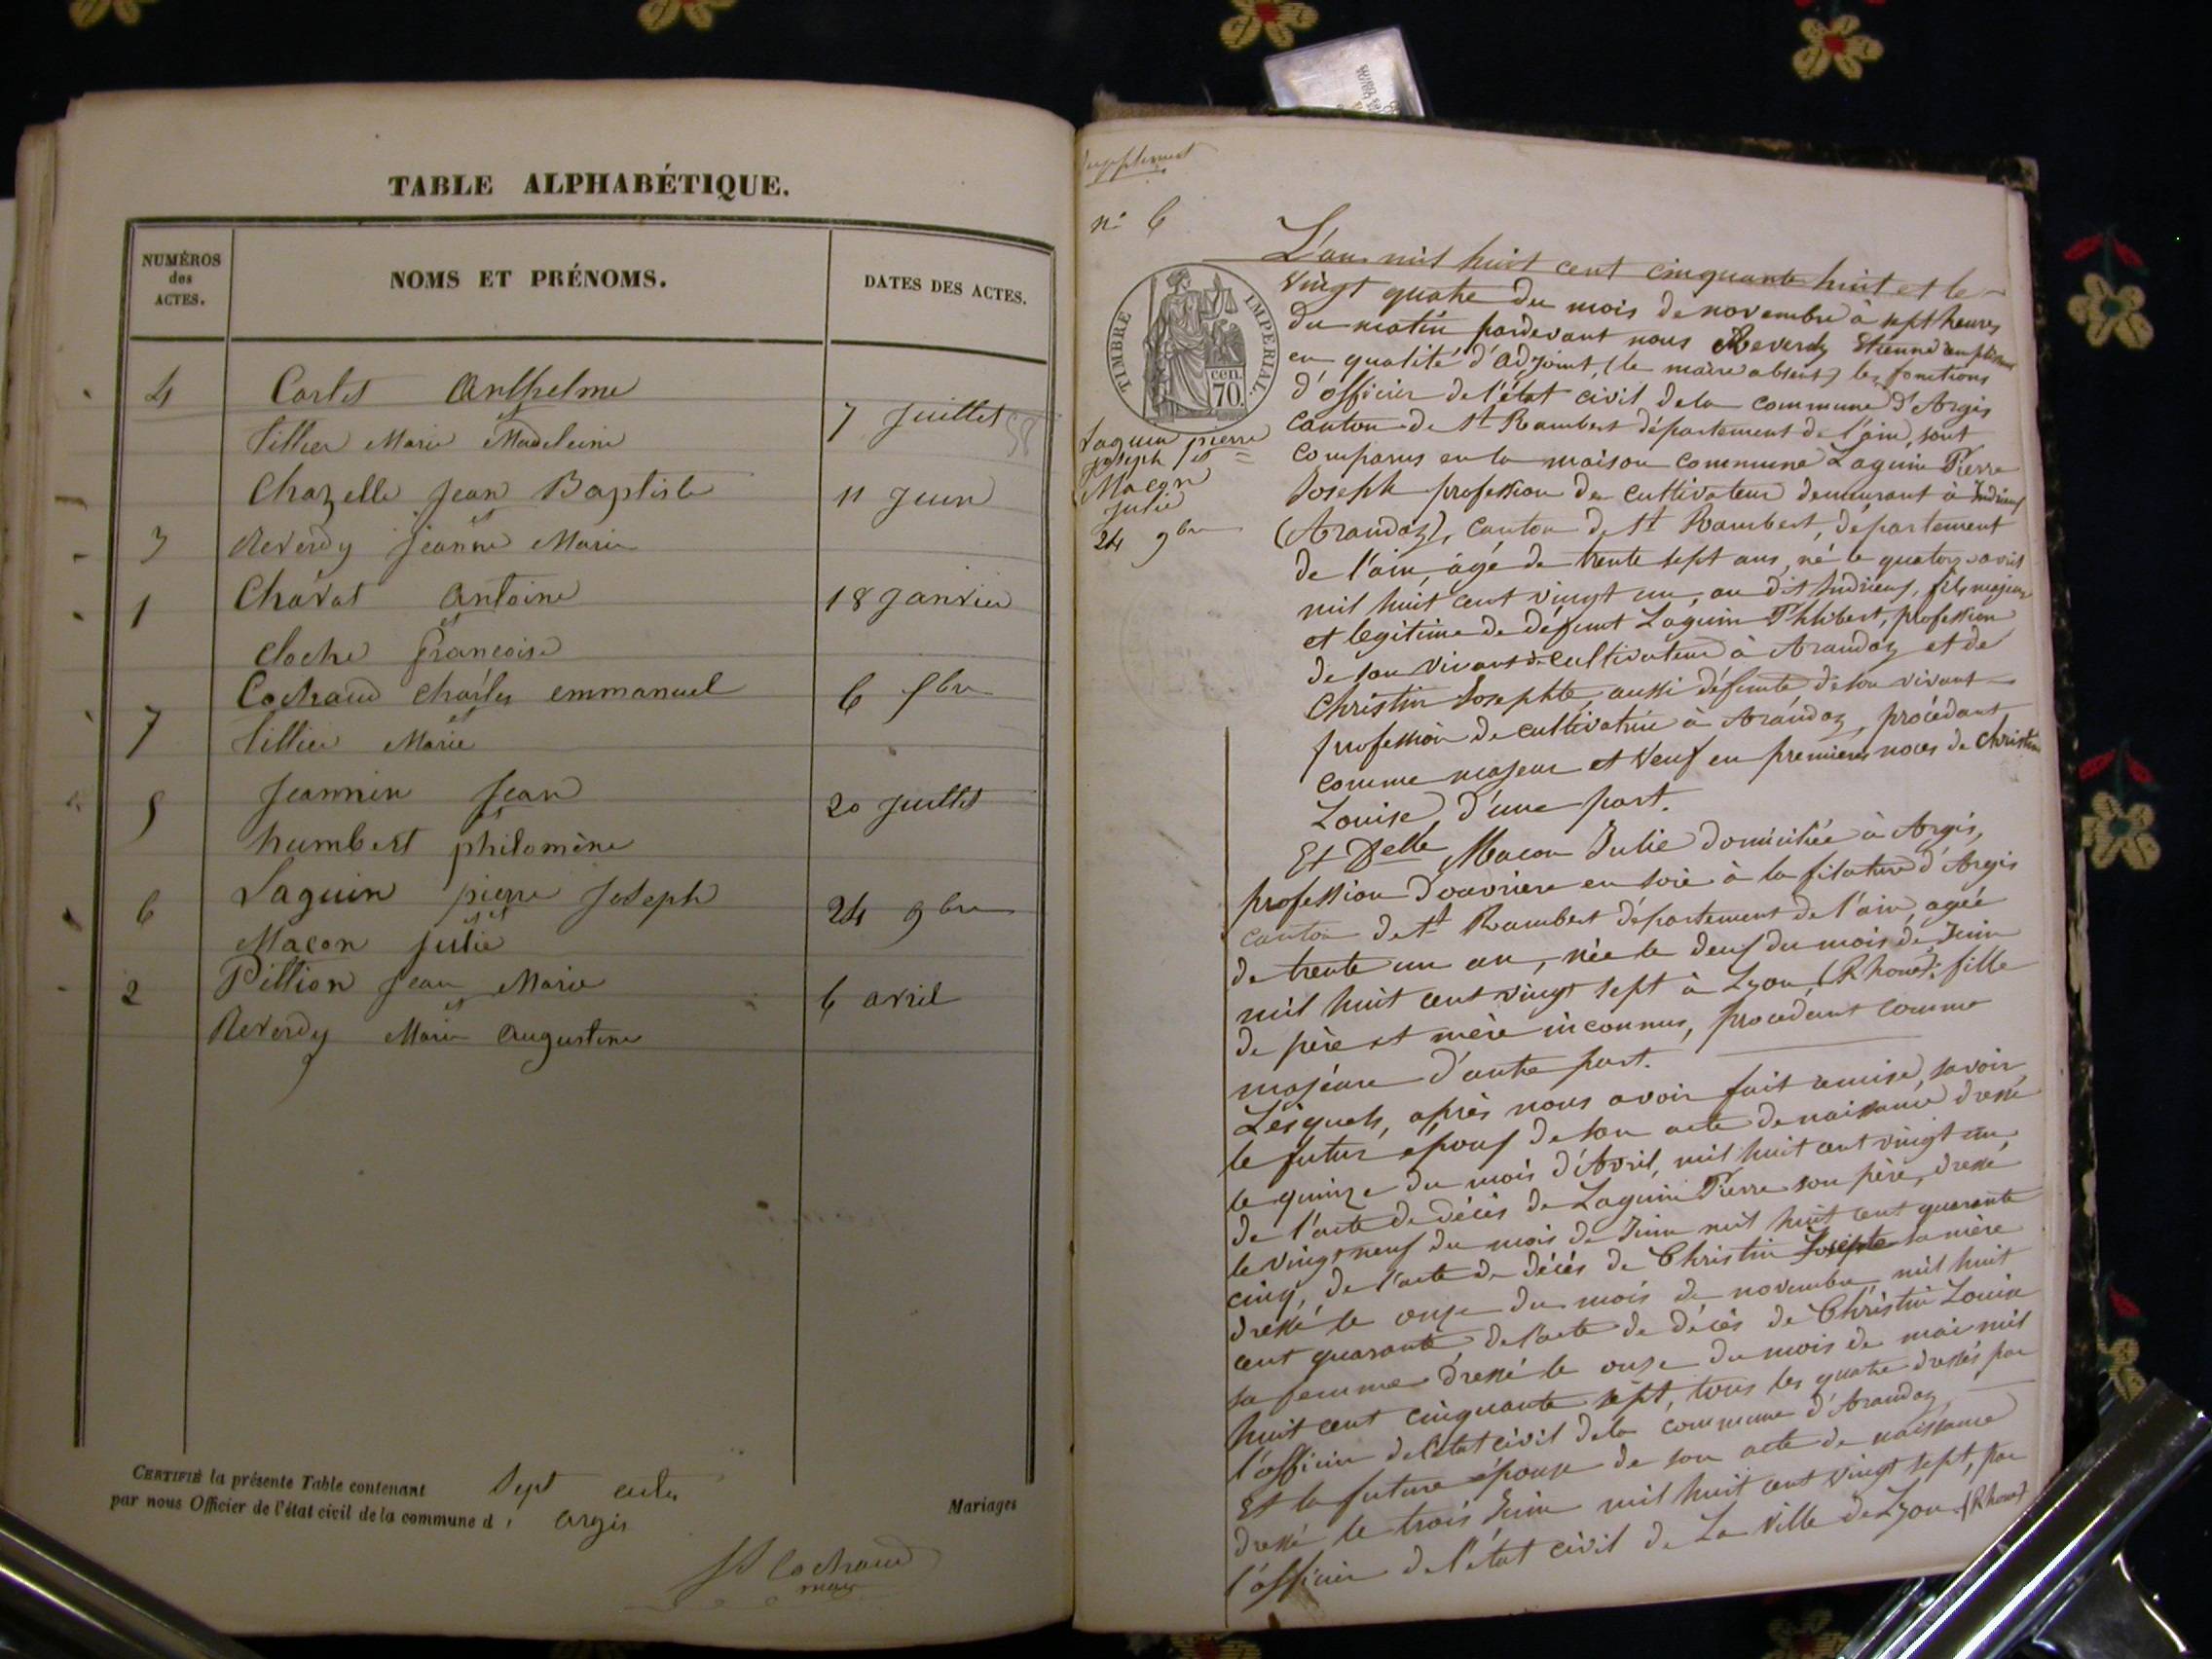 TABLE ALPHABÉTIQUE.
NUMÉROS
des
ACTES.
NOMS ET PRÉNOMS.
DATES DES ACTES.
4 Carlet Anthelme
et
Tillier Marie Madeleine
7 Juillet 58
Chazelle Jean Baptiste
et
11 Juin
3 Reverdy Jeanne Marie
1 Charvet Antoine
et
18 Janvier
Cloche françoise
Cochaud Charles emmanuel
et
6 8bre
7 Tillier Marie
5 Jeannin Jean
et
20 Juillet
humbert philomène
6 Laguin pierre Joseph
et
24 9bre
Maçon Julie
2 Pittion Jean Marie
et
6 avril
Reverdy Marie Augustine
CERTIFIÉ la présente Table contenant sept actes
par nous Officier de l'état civil de la commune d' argis
Mariages
maire
supplement
n° 6
TIMBRE IMPERIAL.
70 cen.
Laguin pierre
joseph et
Maçon
Julie
24 9bre
L'an mil huit cent cinquante huit et le
vingt quatre du mois de novembre à sept heures
du matin pardevant nous Reverdy Etienne remplissant
en qualité d'adjoint, (le maire absent) les fonctions
d'officier de l'état civil de la commune d'Argis
canton de St Rambert département de l'ain, sont
comparus en la maison commune Laguin Pierre
Joseph profession de cultivateur demeurant à Indrieux
(Arandaz), canton de St Rambert, département
de l'ain, âgé de trente sept ans, né le quatorze avril
mil huit cent vingt un, au dit Indrieux, fils majeur
et legitime de défunt Laguin Philibert, profession
de son vivant de cultivateur à Arandaz et de
Christin Josephte, aussi défunte de son vivant
profession de cultivatrice à Arandaz, procédant
comme majeur et veuf en premieres noces de Christin
Louise, d'une part.
Et Delle Macon Julie domiciliée à Argis,
profession d'ouvriere en soie à la filature d'Argis
canton de St Rambert département de l'ain, agée
de trente un an, née le deux du mois de Juin
mil huit cent vingt sept à Lyon, (Rhone). fille
de père et mère inconnus, procedant comme
majeure d'autre part.
Lesquels, après nous avoir fait remise, savoir,
le futur époux de son acte de naissance dressé
le quinze du mois d'Avril, mil huit cent vingt un,
de l'acte de décès de Laguin Pierre son père, dressé
le vingt neuf du mois de Juin mil huit cent quarante
cinq, de l'acte de décès de Christin Josephte sa mère
dressé le onze du mois de novembre mil huit
cent quarante, de l'acte de décès de Christin Louise
sa femme dressé le onze du mois de mai mil
huit cent cinquante sept, tous les quatre dressés par
l'officier de l'état civil de la commune d'Arandaz,
Et la future épouse de son acte de naissance
dressé le trois Juin mil huit cent vingt sept, par
l'officier de l'état civil de La ville de Lyon (Rhone)